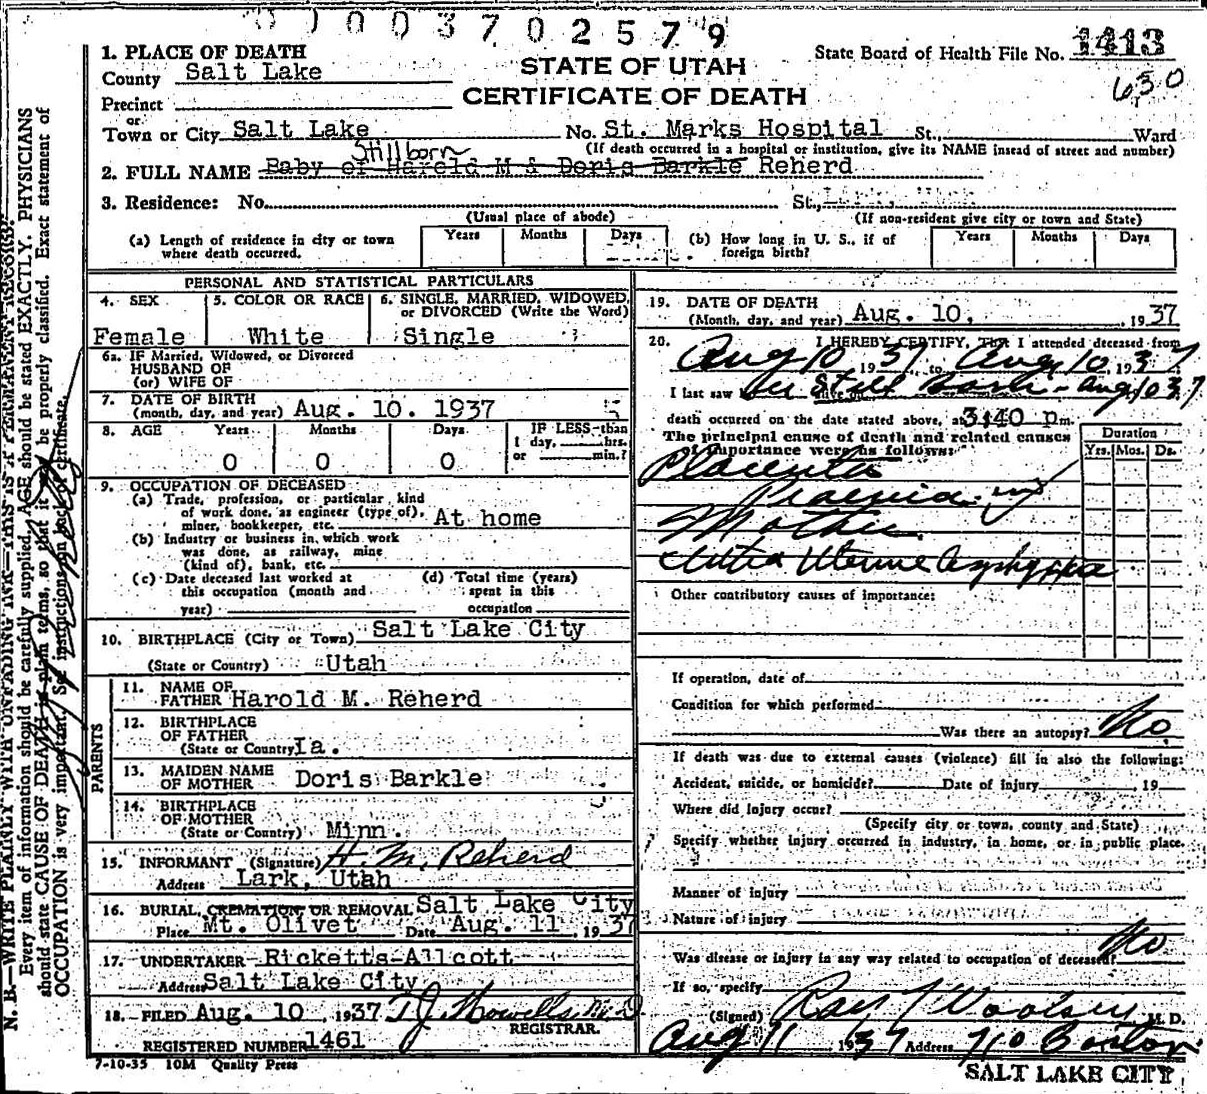 0 1 0 0 3 7 0 2 5 7 9
1. PLACE OF DEATH
County Salt Lake
Precinct
or
Town or City Salt Lake No. St. Marks Hospital St., Ward
STATE OF UTAH
CERTIFICATE OF DEATH
State Board of Health File No. 1413
630
(If death occurred in a hospital or institution, give its NAME instead of street and number)
Stillborn
2. FULL NAME Baby of Harold M & Doris Barkle Reherd
3. Residence: No. St., Lark, Utah
(Usual place of abode) (If non-resident give city or town and State)
(a) Length of residence in city or town where death occurred. Years Months Days
(b) How long in U. S., if of foreign birth? Years Months Days
PERSONAL AND STATISTICAL PARTICULARS
4. SEX 5. COLOR OR RACE 6. SINGLE, MARRIED, WIDOWED, or DIVORCED (Write the Word)
Female White Single
6a. IF Married, Widowed, or Divorced
HUSBAND OF
(or) WIFE OF
7. DATE OF BIRTH
(month, day, and year) Aug. 10. 1937
8. AGE Years Months Days IF LESS than
1 day, hrs.
or min.?
0 0 0
9. OCCUPATION OF DECEASED
(a) Trade, profession, or particular kind
of work done, as engineer (type of),
miner, bookkeeper, etc. At home
(b) Industry or business in which work
was done, as railway, mine
(kind of), bank, etc.
(c) Date deceased last worked at
this occupation (month and
year)
(d) Total time (years)
spent in this
occupation
10. BIRTHPLACE (City or Town) Salt Lake City
(State or Country) Utah
PARENTS
11. NAME OF
FATHER Harold M. Reherd
12. BIRTHPLACE
OF FATHER
(State or Country) Ia.
13. MAIDEN NAME
OF MOTHER Doris Barkle
14. BIRTHPLACE
OF MOTHER
(State or Country) Minn.
15. INFORMANT (Signature) H. M. Reherd
Address Lark, Utah
16. BURIAL, CREMATION OR REMOVAL Salt Lake City
Place Mt. Olivet Date Aug. 11, 1937
17. UNDERTAKER Ricketts-Allcott
Address Salt Lake City
18. FILED Aug. 10, 1937 T J Howells M.D.
REGISTRAR.
REGISTERED NUMBER 1461
7-10-35 10M Quality Press
19. DATE OF DEATH
(Month, day, and year) Aug. 10, 1937
20. I HEREBY CERTIFY, That I attended deceased from
Aug 10 1937, to Aug 10, 1937
I last saw her Still Born - Aug 10 37
death occurred on the date stated above, at 3:40 p m.
The principal cause of death and related causes
of importance were as follows:
Duration
Yrs. Mos. Ds.
Placenta
Praevia in
Mother.
Intra Uterine Asphyxia
Other contributory causes of importance:
If operation, date of
Condition for which performed
Was there an autopsy? No.
If death was due to external causes (violence) fill in also the following:
Accident, suicide, or homicide? Date of injury 19
Where did Injury occur?
(Specify city or town, county and State)
Specify whether injury occurred in industry, in home, or in public place.
Manner of injury
Nature of injury
Was disease or injury in any way related to occupation of deceased? No
If so, specify
(Signed) Ray T Woolsey M. D.
Aug 11 1937 Address 710 Boston
SALT LAKE CITY
N. B.—WRITE PLAINLY WITH UNFADING INK—THIS IS A PERMANENT RECORD.
Every item of information should be carefully supplied. AGE should be stated EXACTLY. PHYSICIANS
should state CAUSE OF DEATH in plain terms, so that it may be properly classified. Exact statement of
OCCUPATION is very important. See instructions on back of certificate.